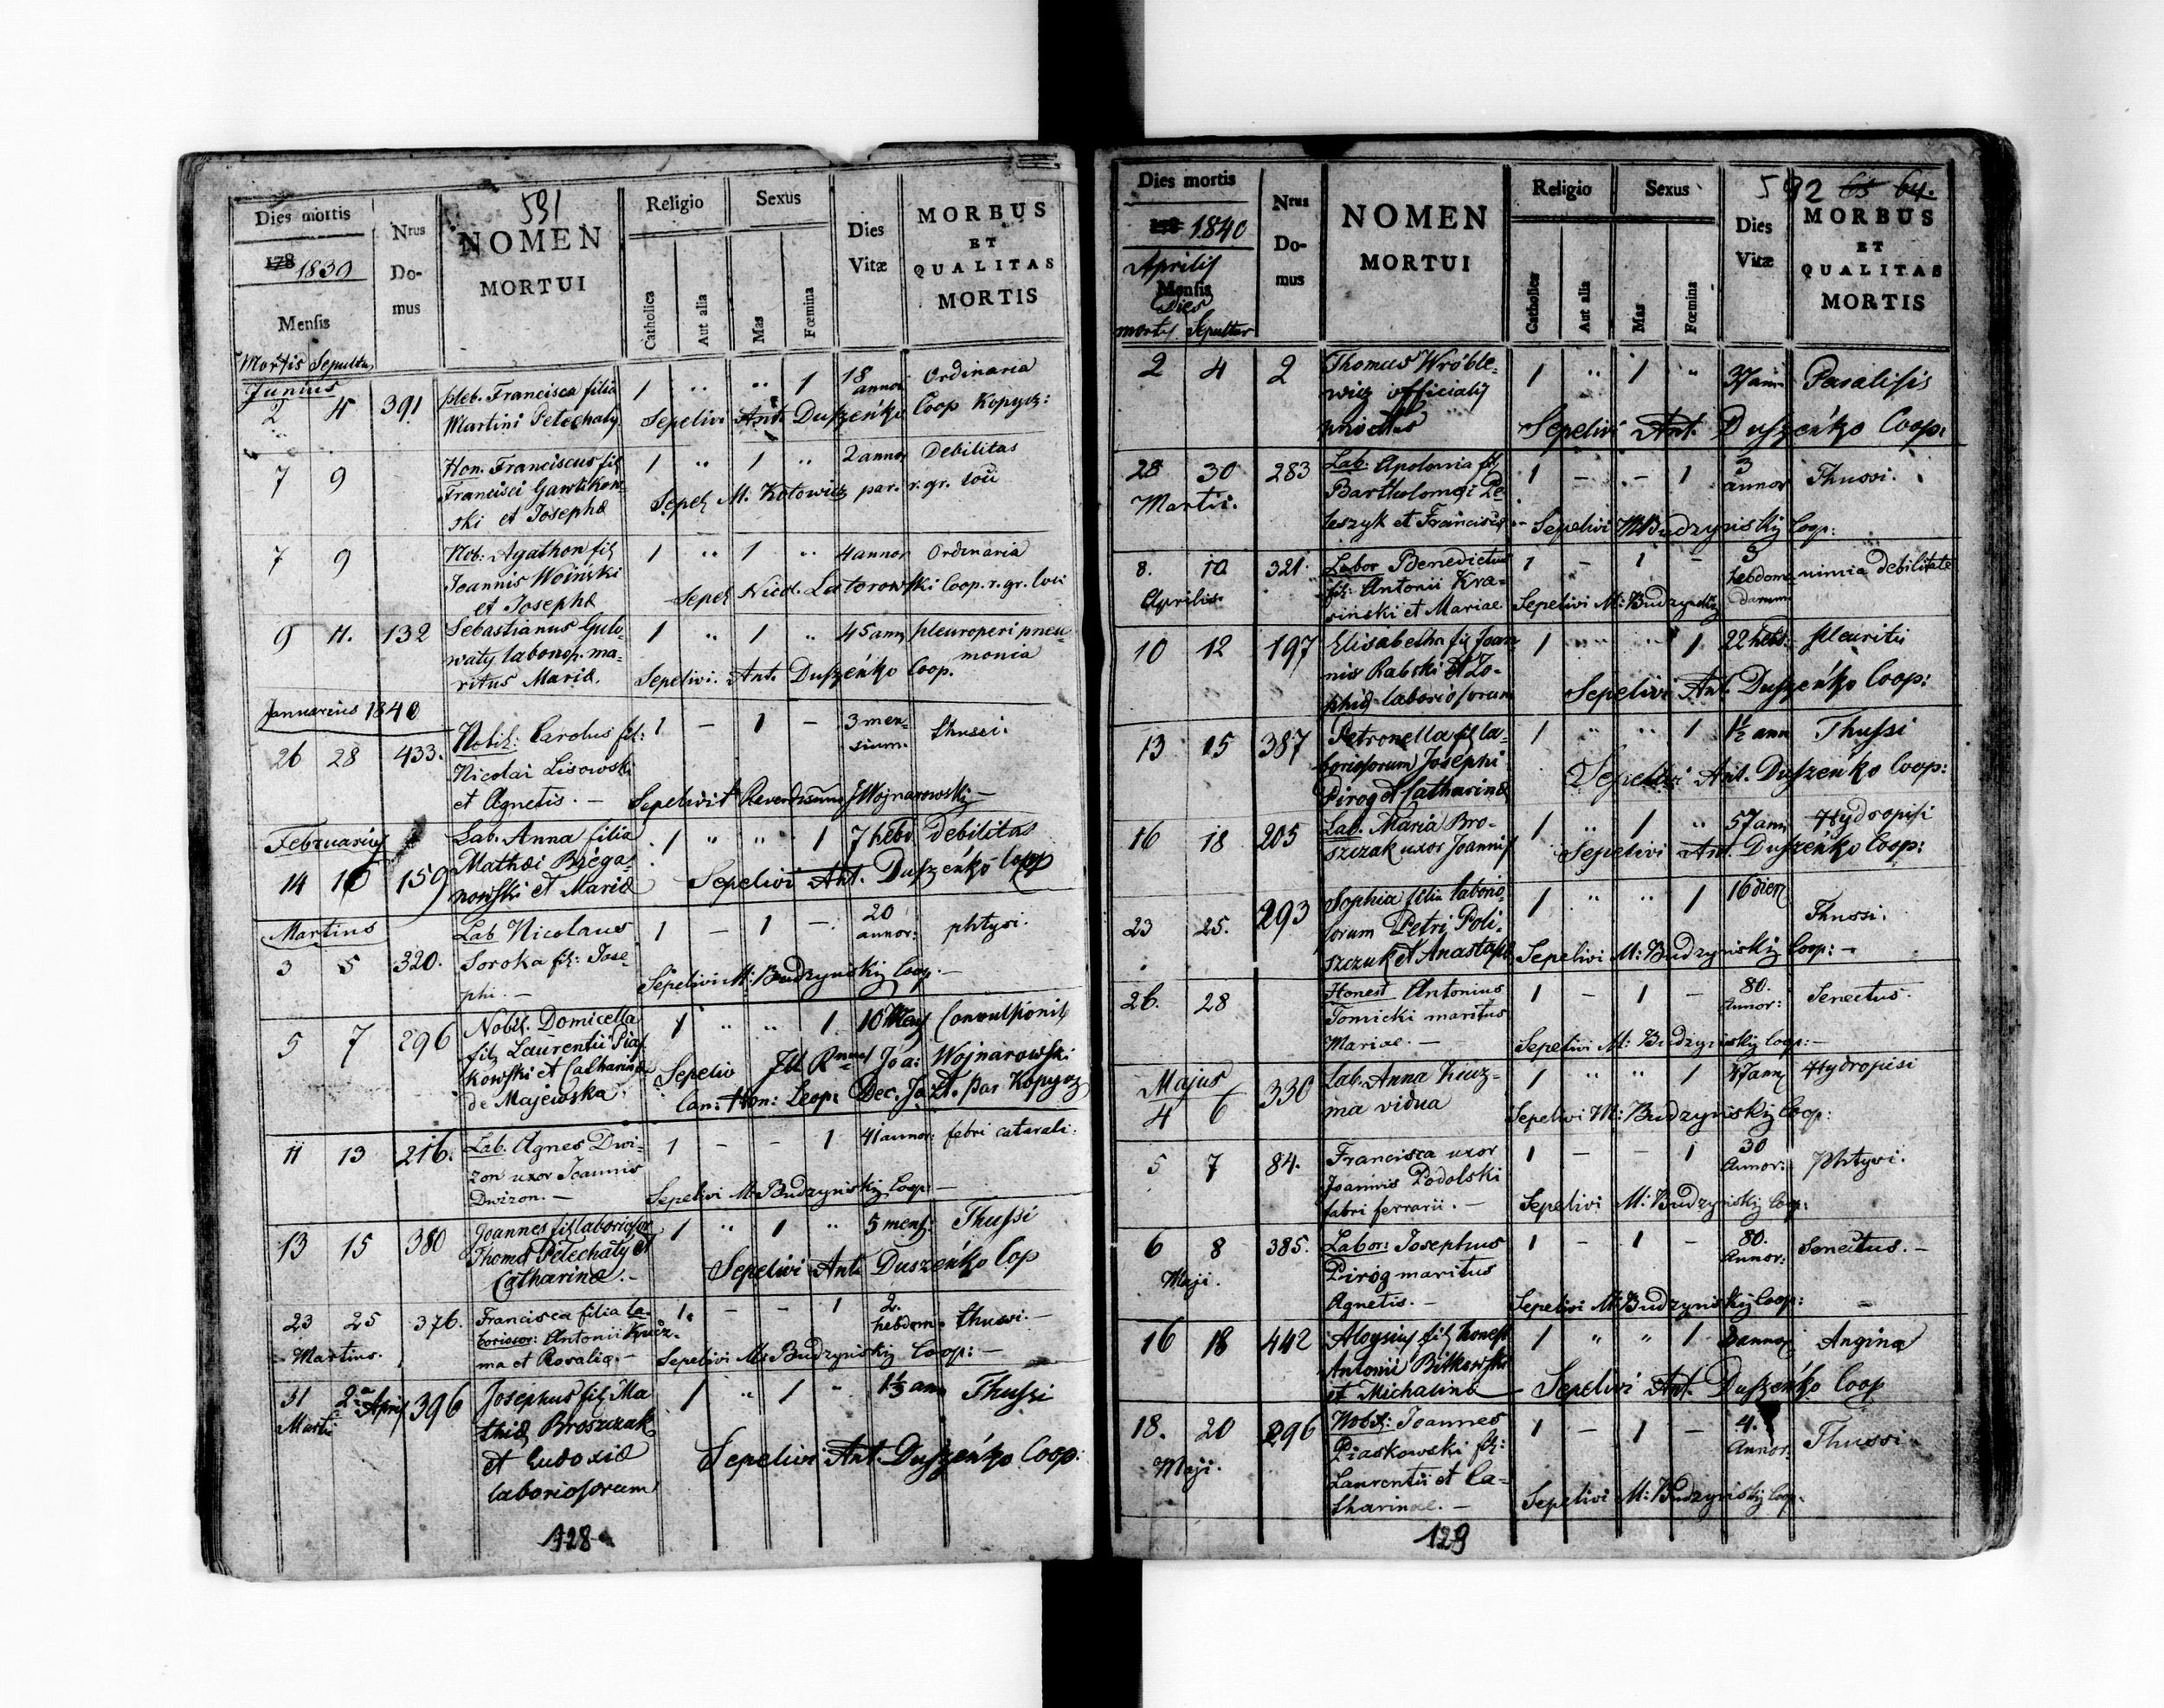 591
Dies mortis
178 1839
Mensis
Mortis Sepultu
Nrus Do-mus
NOMEN
MORTUI
Religio
Catholica
Aut alia
Sexus
Mas
Fœmina
Dies Vitæ
MORBUS
ET
QUALITAS
MORTIS
Junius
2 4 391 pleb. Francisca filia 1 " " 1 18 annor Ordinaria
Martini Petechaty Sepelivi Ant. Duszeńko Coop Kopycz:
7 9 Hon. Franciscus fil 1 " 1 " 2 annor Debilitas
Francisci Gawlikow-
ski et Josephæ Sepel M: Kotowicz par. r. gr. loci
7 9 Nob: Agathon fil 1 " 1 " 4 annor Ordinaria
Joannis Woiński
et Josephæ Sepel Nicol. Latorowski Coop. r. gr. loci
9 11. 132 Sebastianus Guto- 1 " 1 " 45 ann pleuroperipneu-
waty laborios. ma- monia
ritus Mariæ. Sepelivi. Ant. Duszeńko Coop.
Januarius 1840
26 28 433. Nobil: Carolus fil: 1 – 1 – 3 men- thussi.
Nicolai Lisowski sium.
et Agnetis. – Sepelivit Reverdissimus J Wojnarowski –
Februarius
14 16 159 Lab. Anna filia 1 " " 1 7 hebd. Debilitas
Mathæi Biega-
nowski et Mariæ Sepelivi Ant. Duszeńko Coop
Martius
3 5 320. Lab Nicolaus 1 – 1 – 20 annor: phtysi
Soroka fil: Jose-
phi. – Sepelivi M: Budzyńskij Coop. –
5 7 296 Nobil. Domicella 1 " " 1 Convulsionib
fil Laurentii Pias
kowski et Catharinæ Sepeliv Jll Rmus Joa: Wojnarowski
de Majewska. Can: Hon: Leop: Dec. Ja zt. par Kopycz
11 13 216. Lab. Agnes Dwi- 1 – – 1 41 annor: febri catarali.
zon uxor Joannis
Dwizon. – Sepelivi M: Budzyńskij Coop: –
13 15 380 Joannes fil laboriosor 1 " 1 " 5 mens: Thussi
Thomæ Petechaty et
Catharinæ. – Sepelivi Ant. Duszeńko Cop
23 25 376. Francisca filia la- 1. – – 1 2. hebdom. thussi. –
Martius. borioror: Antonii Kuź-
ma et Rosaliæ. – Sepelivi M: Budzyńskij Coop: –
31 2a April 396 Josephus fil Ma 1 " 1 " 1 1/3 ann Thussi
Martii thiæ Broszczak
et Eudoxiæ Sepelivi Ant. Duszeńko Coop:
laboriosorum
128
592 65 64.
Dies mortis
178 1840
Aprilis
Mensis
Dies
mortis Sepultur
Nrus Do-mus
NOMEN
MORTUI
Religio
Catholica
Aut alia
Sexus
Mas
Fœmina
Dies Vitæ
MORBUS
ET
QUALITAS
MORTIS
2 4 2 Thomas Wróble- 1 " 1 " 37 ann Paralisis
wicz officialis
privatus Sepelivi Ant. Duszeńko Coop:
28 30 283 Lab: Apolonia fil 1 – – 1 3 annor Thussi.
Martii. Bartholomæi Le-
leszyk et Francisca – Sepelivi M: Budzyńskij Coop:
8. 10 321. Labor Benedictus 1 – 1 – 3 hebdom- nimia debilitate
Aprilis. fil: Antonii Kra- darum
siński et Mariae Sepelivi M: Budzyńskij
10 12 197 Elisabetha fil Joan 1 " " 1 22 hebd. pleuritis
nis Rabski et Zo-
phiæ laboriosorum Sepelivi Ant. Duszeńko Coop:
13 15 387 Petronella fil la- 1 " " 1 1½ ann Thussi
boriosorum Josephi
Pirog et Catharinæ Sepelivi Ant. Duszeńko Coop:
16 18 205 Lab. Maria Bro- 1 " 1 " 57 ann Hydropisi
szczak uxor Joannis Sepelivi Ant. Duszeńko Coop:
23 25. 293 Sophia filia laborio- 1 " " 1 16 dier Thussi.
sorum Petri Poli-
szczuk et Anastas Sepelivi M: Budzyńskij Coop: –
26. 28 Honest Antonius 1 – 1 – 80. Annor: Senectus.
Tomicki maritus
Mariae. – Sepelivi M: Budzyńskij Coop: –
Majus
4 6 330 Lab. Anna Kuuz- 1 " " 1 47 ann Hydropisi
ma vidua Sepelivi M: Budzyńskij Coop:
5 7 84. Francisca uxor 1 – – 1 30 Annor: phtysi.
Joannis Podolski
fabri ferrarii. – Sepelivi M: Budzyńskij Coop:
6 8 385. Labor: Josephus 1 – 1 – 80. Annor: Senectus. –
Maji. Pirog maritus
Agnetis. – Sepelivi M: Budzyńskij Coop: –
16 18 442 Aloysius fil honest 1 " " 1 3 annor Angina
Antonii Bitkowski
et Michalinæ – Sepelivi Ant. Duszeńko Coop
18. 20 296 Nobil: Joannes 1 – 1 – 4. Annor. Thussi
Maji. Piaskowski fil:
Laurentii et Ca-
tharinae. – Sepelivi M: Budzyńskij Coop.
129